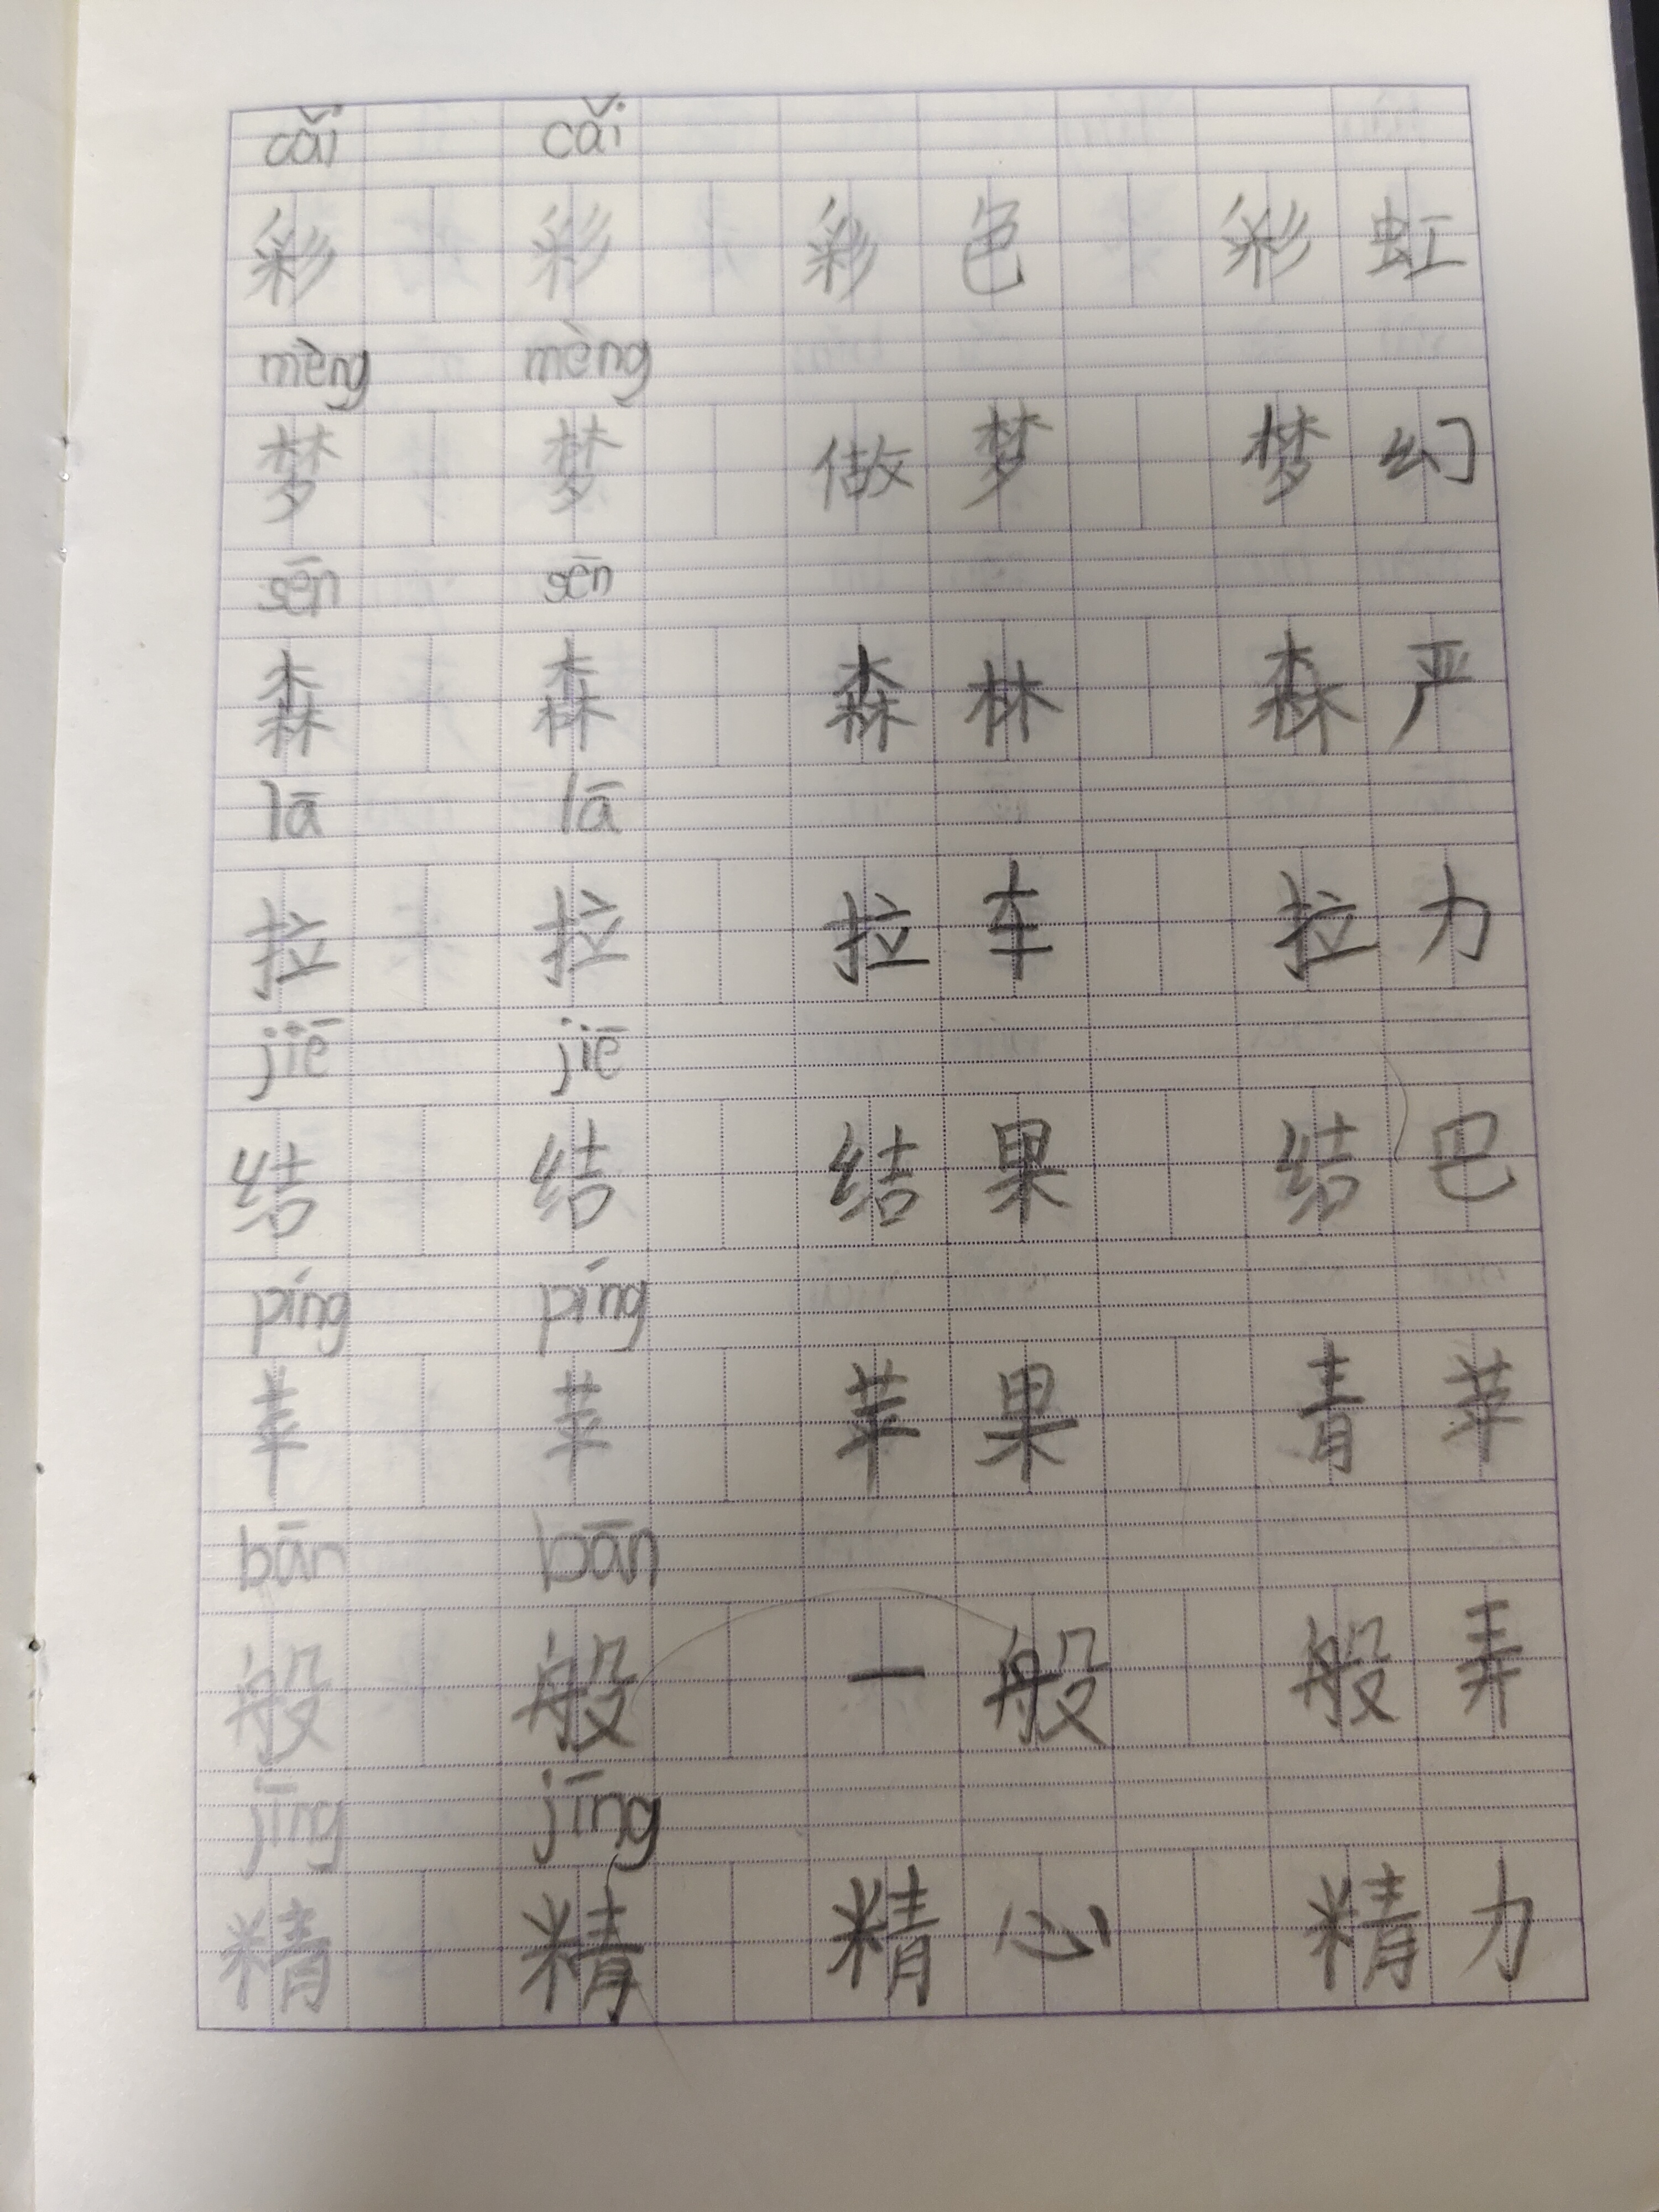 cǎi cǎi
彩 彩 彩色 彩虹
mèng mèng
梦 梦 做梦 梦幻
sēn sēn
森 森 森林 森严
lā lā
拉 拉 拉车 拉力
jiē jiē
结 结 结果 结巴
píng píng
苹 苹 苹果 青苹
bān bān
般 般 一般 般弄
jīng jīng
精 精 精心 精力